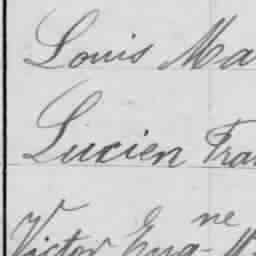 Louis Ma
Lucien Fra
Victor Eug-ne